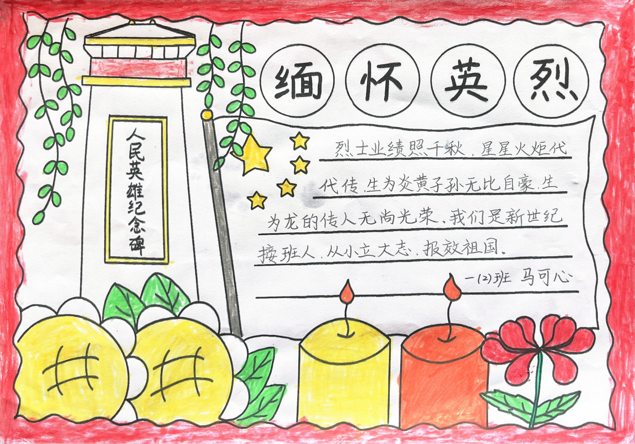 缅怀英烈
人民英雄纪念碑
烈士业绩照千秋，星星火炬代
代传，生为炎黄子孙无比自豪，生
为龙的传人无尚光荣，我们是新世纪
接班人，从小立大志，报效祖国。
一(2)班 马可心